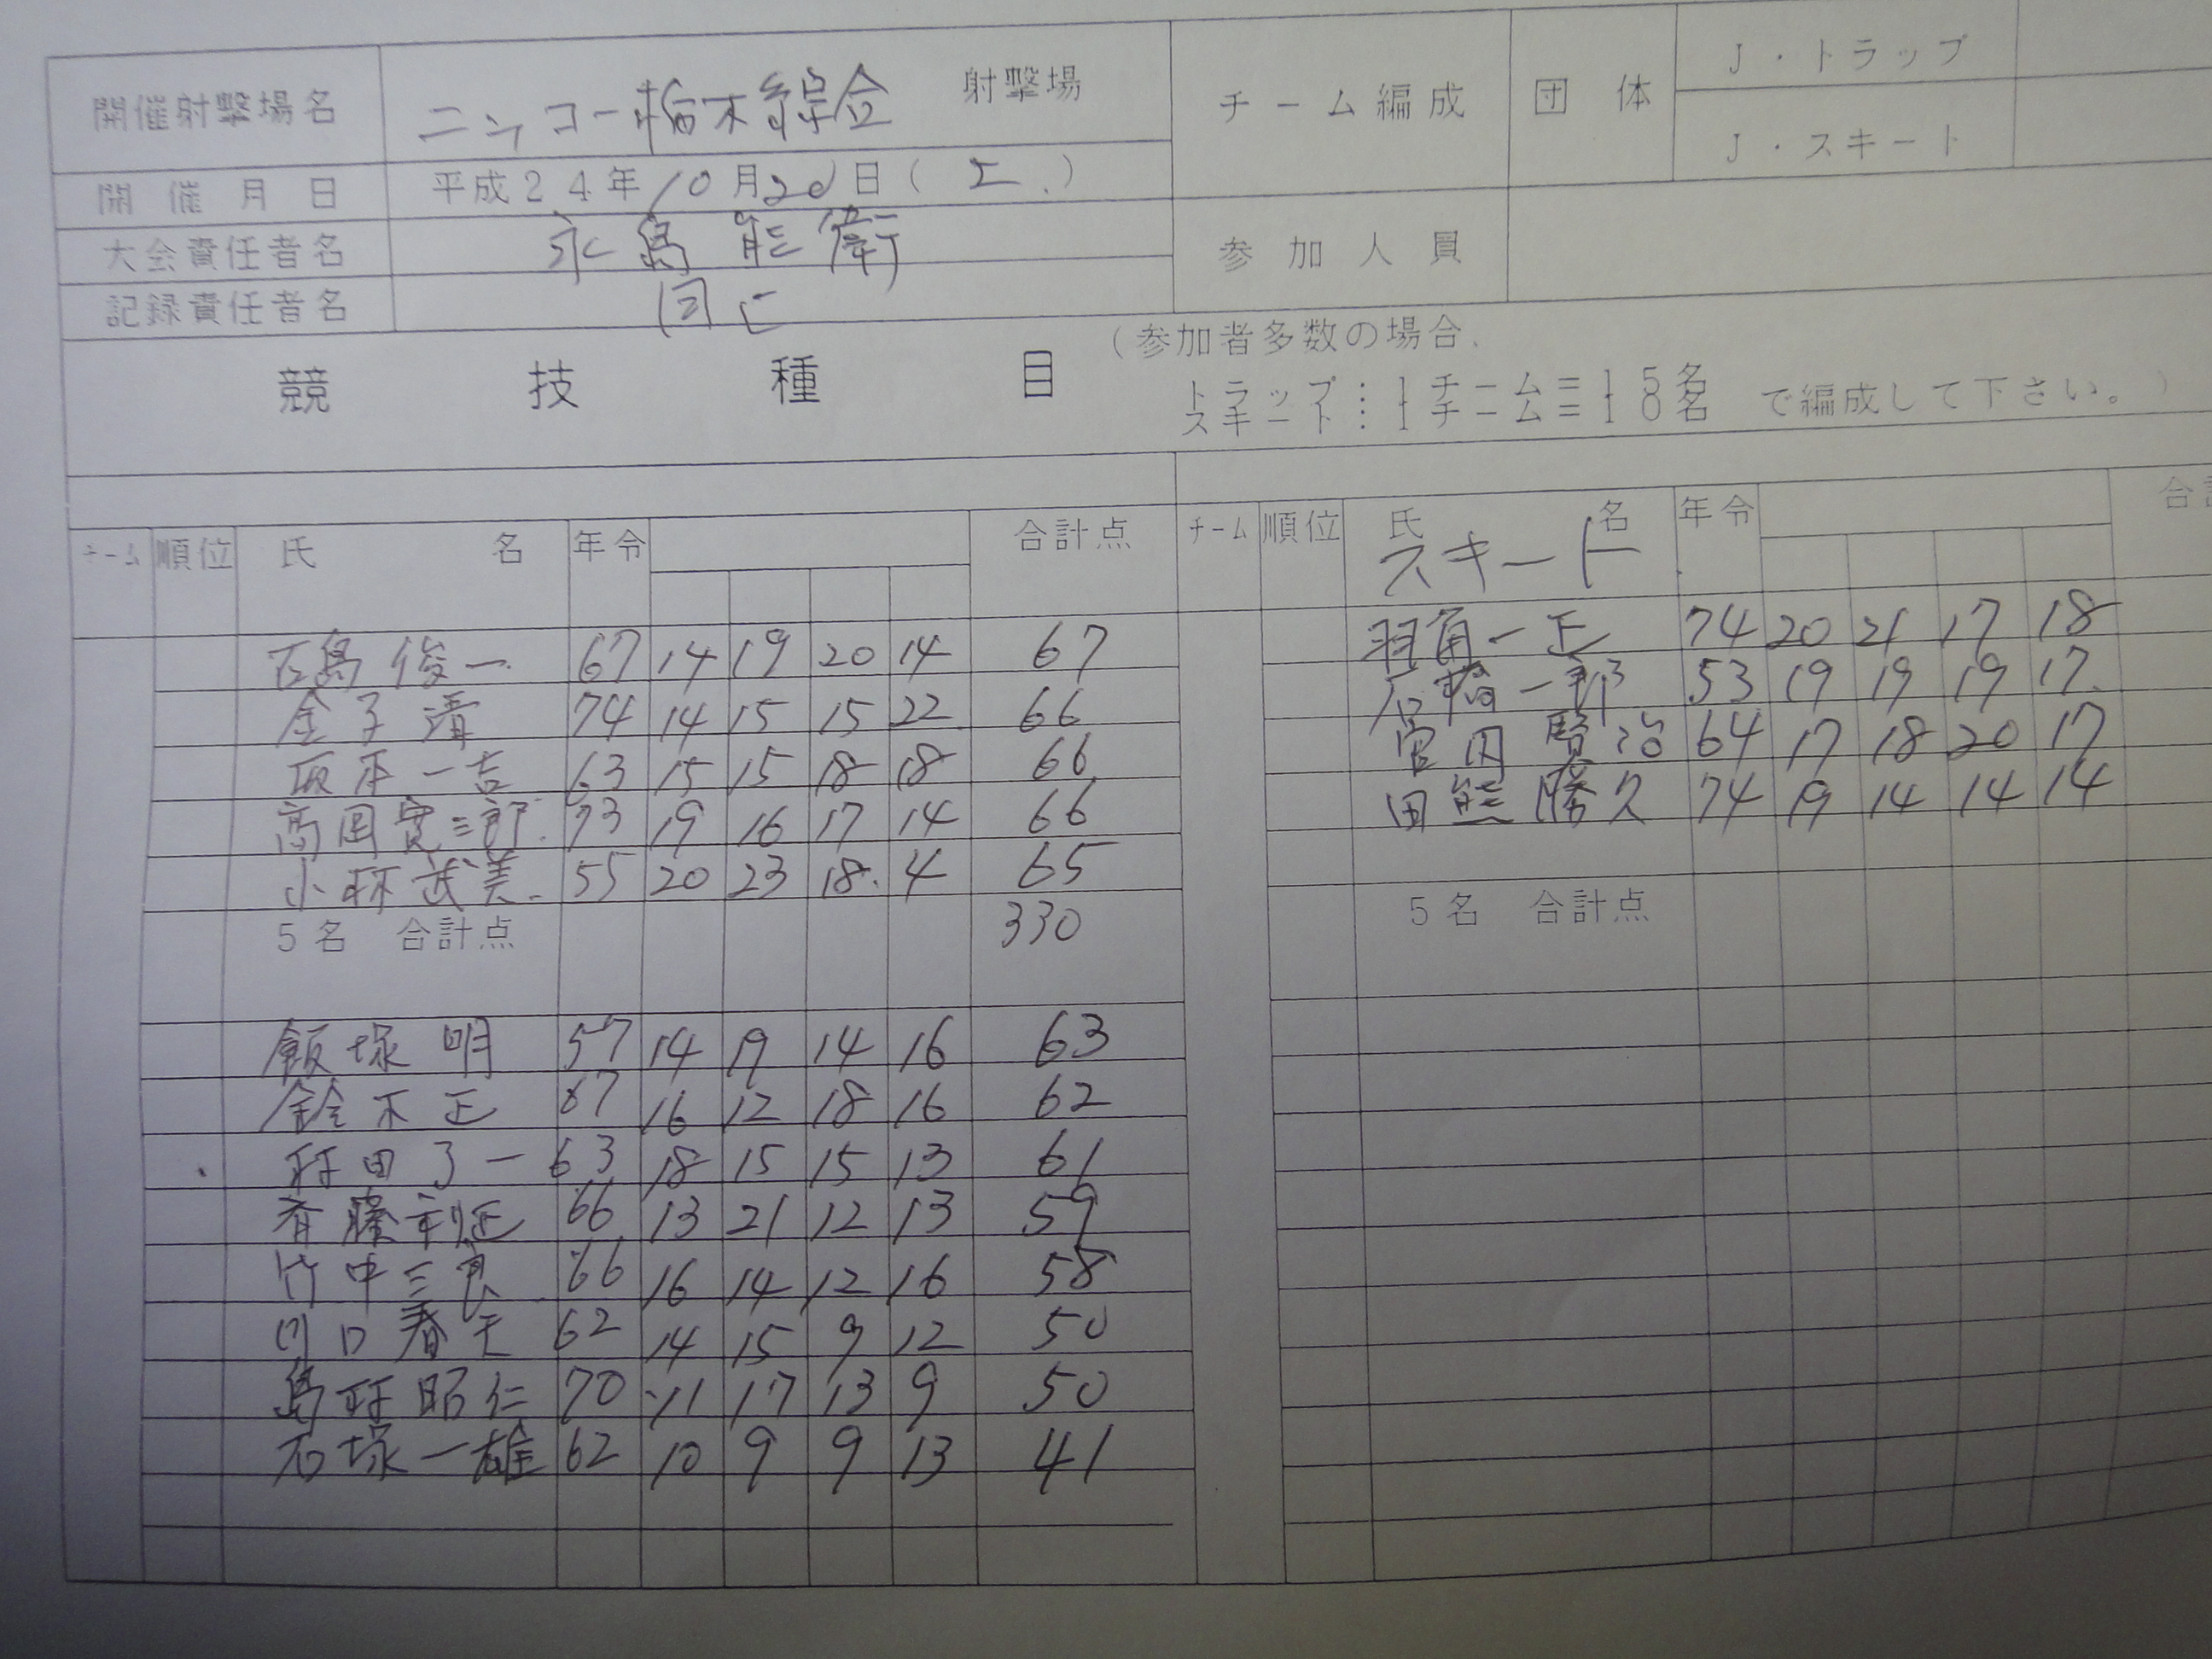 開催射撃場名 ニッコー栃木綜合 射撃場 チーム編成 団体 J・トラップ
J・スキート
開催月日 平成24年10月20日(土.)
大会責任者名 永島能衛 参加人員
記録責任者名 同上
競技種目 (参加者多数の場合、
トラップ:1チーム=15名
スキート:1チーム=10名 で編成して下さい。)
チーム 順位 氏名 年令 合計点
石島俊一 67 14 19 20 14 67
金子清 74 14 15 15 22 66
坂本一吉 63 15 15 18 18 66
高岡寛三郎 73 19 16 17 14 66
小林武美 55 20 23 18 4 65
5名 合計点 330
飯塚明 57 14 19 14 16 63
鈴木正 67 16 12 18 16 62
秋田了一 63 18 15 15 13 61
斉藤利延 66 13 21 12 13 59
竹中三良 66 16 14 12 16 58
川口春夫 62 14 15 9 12 50
島村昭仁 70 11 17 13 9 50
石塚一雄 62 10 9 9 13 41
チーム 順位 氏名 年令
スキート
羽角一正 74 20 21 17 18
石橋一郎 53 19 19 19 17
賢治 64 17 18 20 17
田熊勝久 74 19 14 14 14
5名 合計点